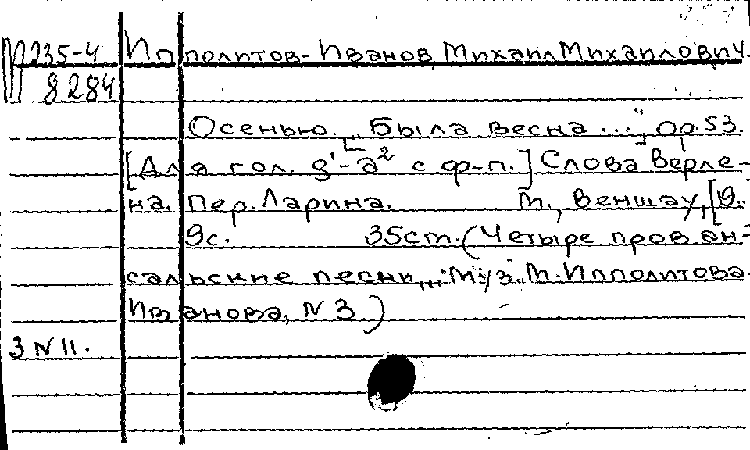 П 235-4 Ипполитов-Иванов, Михаил Михаилович.
8284
Осенью. „Была весна ...", ор. 53.
[Для гол. g¹-a² с ф-п.] Слова Верле-
на. Пер. Ларина. М., Веншау,
9с. 35cm. (Четыре прован-
сальские песни... Муз. М. Ипполитова-
Иванова, N 3.)
3 N 11.